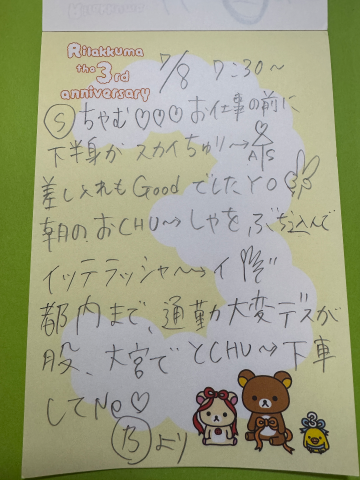 Rilakkuma
the 3rd
anniversary
7/8 7:30〜
Ⓢちゃむ♡♡♡お仕事の前に
下半身が スカイちゅリ〜→
A S
差し入れも Good でした Y O
朝の おCHU〜 しゃを ぶち込んで
イッテラッシャ〜→イ
都内まで、通勤大変デスが
股、大宮で とCHU〜→下車
してNe♡
より